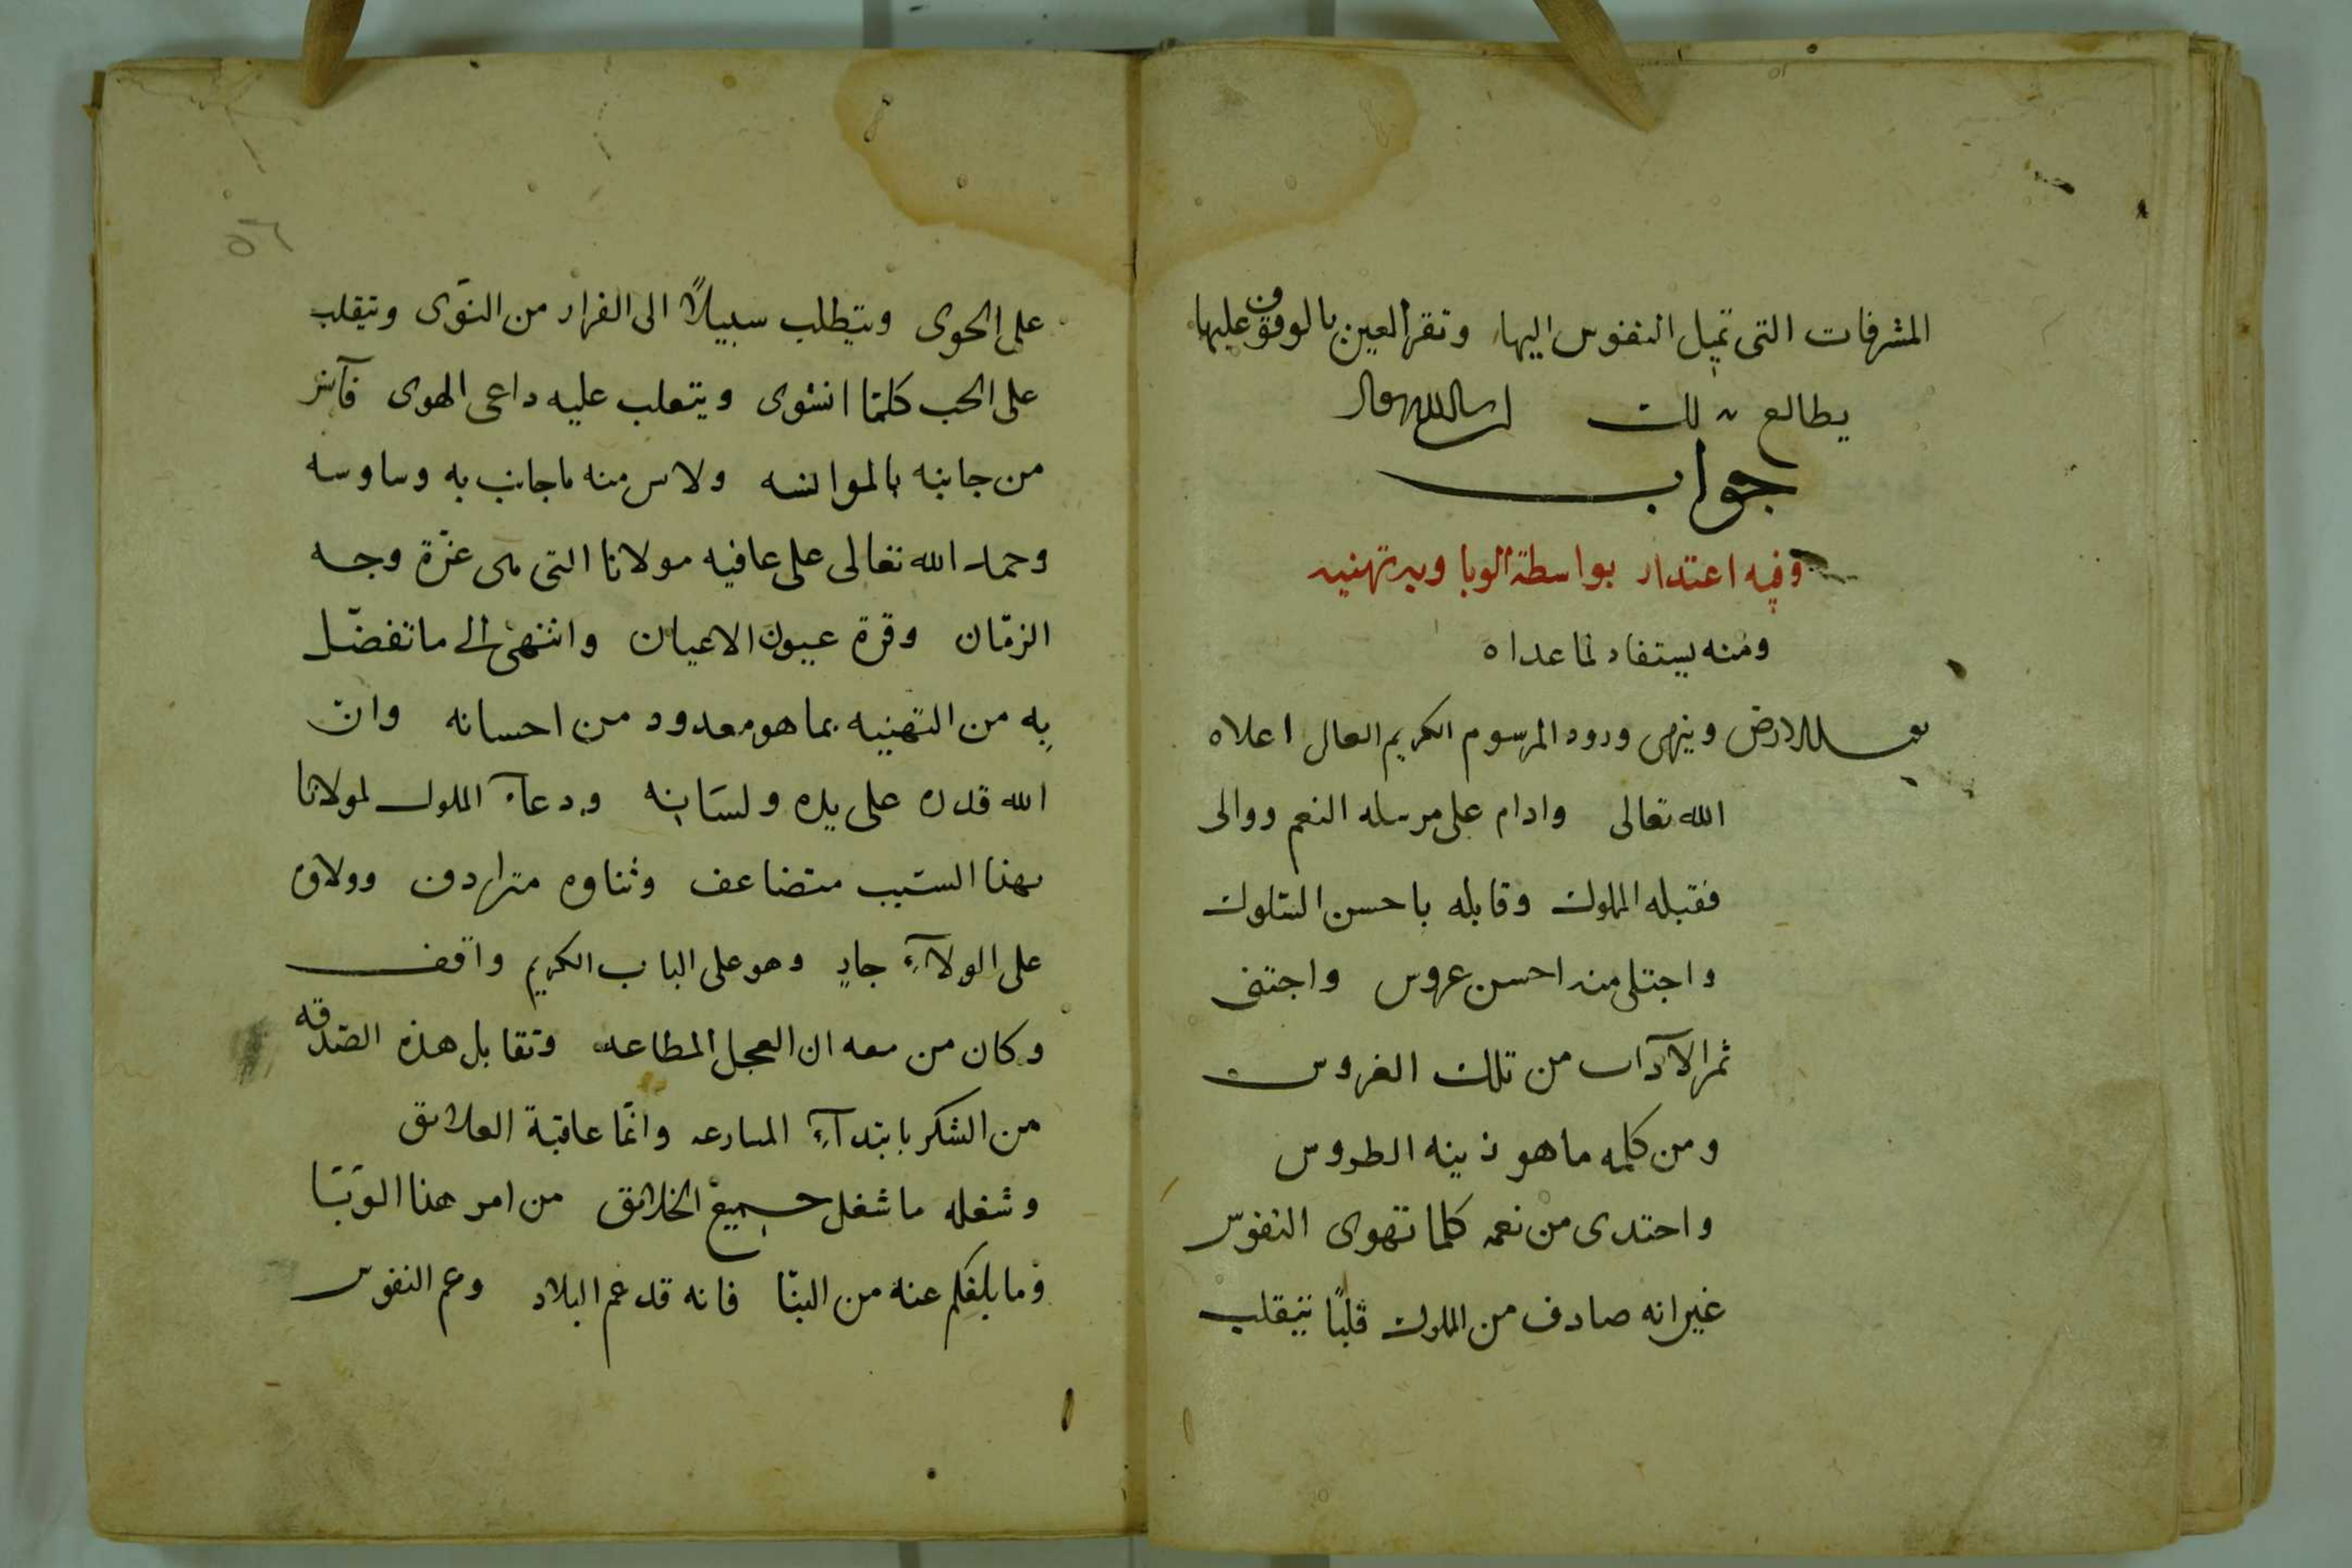 المشرفات التى تميل النفوس اليها وتقر العين بالوقوف عليها
يطالع بذلك ان شا الله تعالى
جواب
وفيه اعتدار بواسطة الوبا وبه تهنيه
ومنه يستفاد لما عداه
يقبل الارض وينهى ورود المرسوم الكريم العالى اعلاه
الله تعالى وادام على مرسله النعم ووالى
فقبله المملوك وقابله باحسن السلوك
واجتلى منه احسن عروس واجتنى
ثمر الآداب من تلك الغروس
ومن كلمه ما هو زينه الطروس
واحتدى من نعمه كلما تهوى النفوس
غير انه صادف من المملوك قلبًا يتقلب
٥٦
على الجوى ويتطلب سبيلاً الى الفرار من النوى ويتقلب
على الحب كلما انشوى ويتعلب عليه داعى الهوى فآثر
من جانبه بالموانسه ولامس منه ما جانب به وساوسه
وحمد الله تعالى على عافيه مولانا التى هى غرة وجه
الزمان وقرة عيون الاعيان وانتهى الى ما تفضل
به من التهنيه بما هو معدود من احسانه وان
الله قدره على يده ولسانه ودعآء المملوك لمولانا
بهذا السبب متضاعف وثناوه مترادف وولاوه
على الولآء جارٍ وهو على الباب الكريم واقف
وكان من معه ان العجل المطاعه وتقابل هذه الصدقه
من الشكر بابتدآء المسارعه وانما عاقبة العلايق
وشغله ما شغل جميع الخلائق من امر هذا الوبا
وما بلغكم عنه من النبا فانه قد عم البلاد وعم النفوس